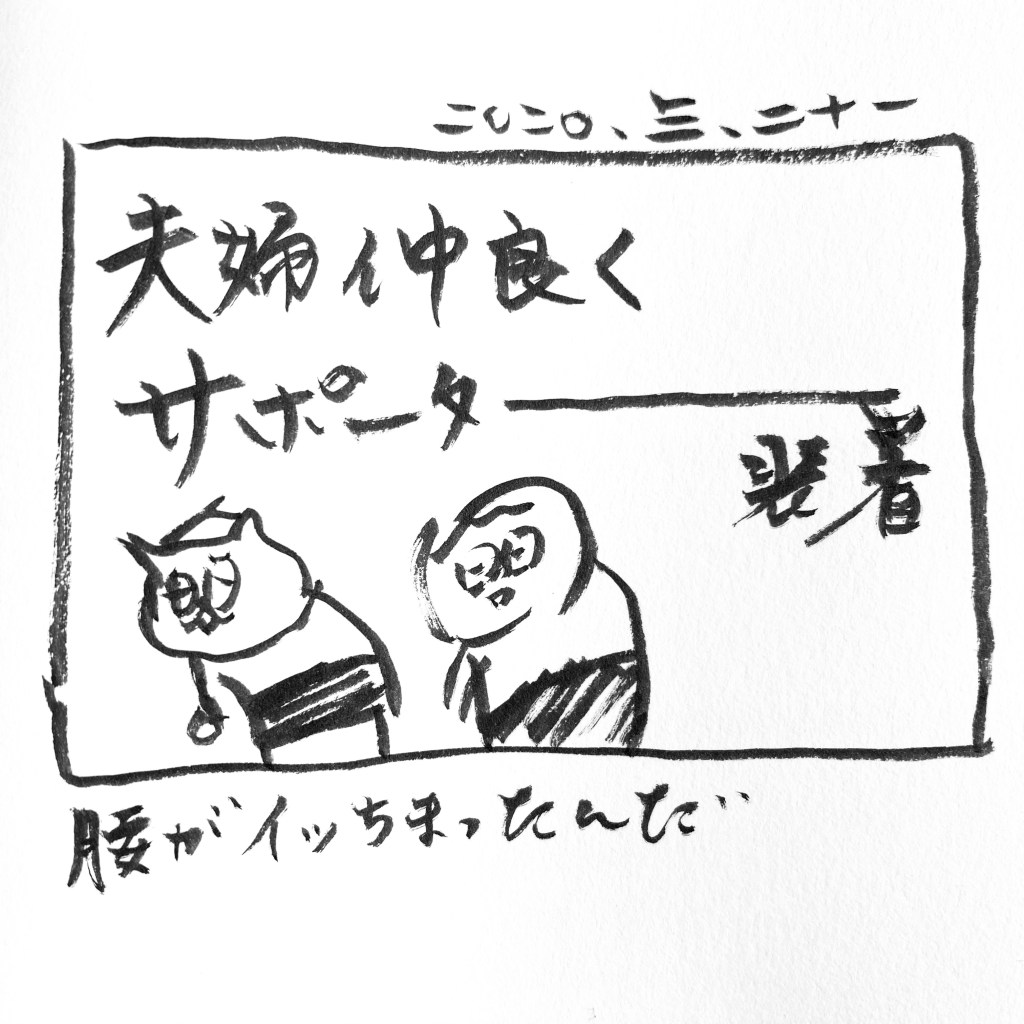 二〇二〇、三、二十一
夫婦仲良く
サポーター
装着
腰がイッちまったんだ